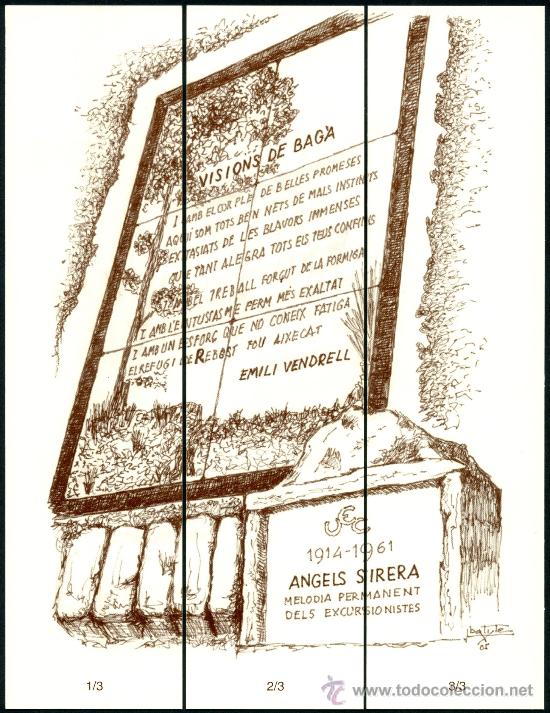 VISIONS DE BAGÀ
I AMB EL COR PLE DE BELLES PROMESES
AQUÍ SOM TOTS BEN NETS DE MALS INSTINTS
EXTASIATS DE LES BLAVORS IMMENSES
QUE TANT ALEGRA TOTS ELS TEUS CONFINS
EL TREBALL FORÇUT DE LA FORMIGA
I AMB L'ENTUSIASME PERM MÉS EXALTAT
I AMB UN ESFORÇ QUE NO CONEIX FATIGA
EL REFUGI DE REBOST FOU AIXECAT
EMILI VENDRELL
UEC
1914-1961
ANGELS SIRERA
MELODIA PERMANENT
DELS EXCURSIONISTES
05
1/3 2/3 3/3
www.todocoleccion.net